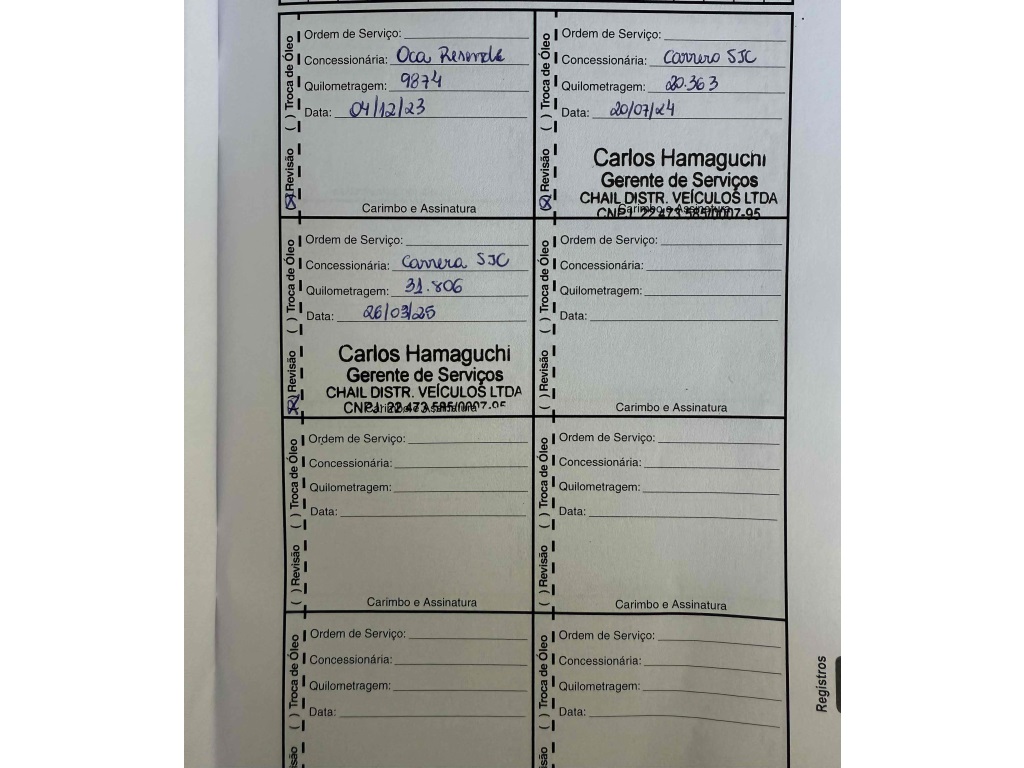 Ordem de Serviço:
Concessionária: Oca Resende
Quilometragem: 9874
Data: 04/12/23
( ) Troca de Óleo
(X) Revisão
Carimbo e Assinatura
Ordem de Serviço:
Concessionária: Carrera SJC
Quilometragem: 20.363
Data: 20/07/24
( ) Troca de Óleo
(X) Revisão
Carlos Hamaguchi
Gerente de Serviços
CHAIL DISTR. VEÍCULOS LTDA
Carimbo e Assinatura
CNPJ. 22.473.585/0007-95
Ordem de Serviço:
Concessionária: Carrera SJC
Quilometragem: 31.806
Data: 26/03/25
( ) Troca de Óleo
(X) Revisão
Carlos Hamaguchi
Gerente de Serviços
CHAIL DISTR. VEÍCULOS LTDA
CNPJ. 22.473.585/0007-95
Carimbo e Assinatura
Ordem de Serviço:
Concessionária:
Quilometragem:
Data:
( ) Troca de Óleo
( ) Revisão
Carimbo e Assinatura
Ordem de Serviço:
Concessionária:
Quilometragem:
Data:
( ) Troca de Óleo
( ) Revisão
Carimbo e Assinatura
Ordem de Serviço:
Concessionária:
Quilometragem:
Data:
( ) Troca de Óleo
( ) Revisão
Carimbo e Assinatura
Ordem de Serviço:
Concessionária:
Quilometragem:
Data:
( ) Troca de Óleo
visão
Ordem de Serviço:
Concessionária:
Quilometragem:
Data:
( ) Troca de Óleo
visão
Registros